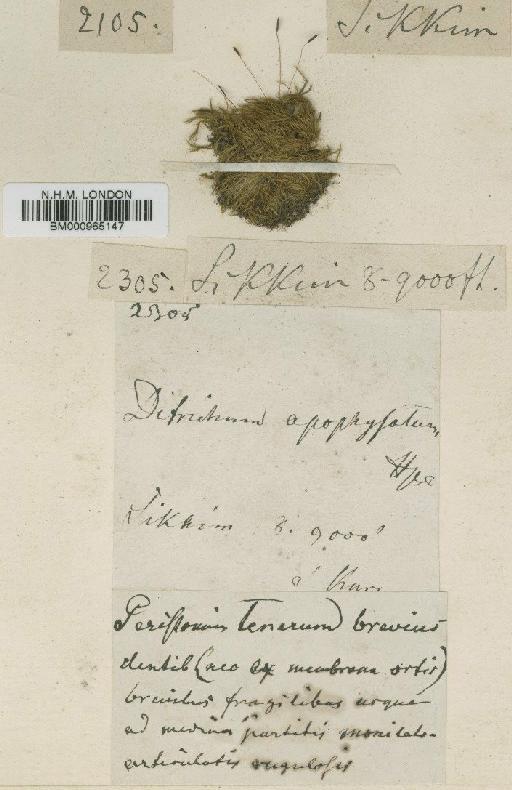 2105.
Sikkim
N.H.M. LONDON
BM000965147
2305. Sikkim 8-9000 ft.
2305
Ditrichum apophysatum,
Hpe
Sikkim 8. 9000'
Kurz
Peristomium tenerum brevius
dentib (nec ex membrana ortis)
brevibus fragilibus usque
ad medium partitis
articulatis rugulosis